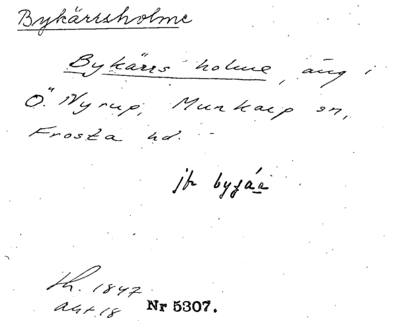 Bykärrsholme
Bykärrs holme, äng i
Ö. Nyrup, Munkarp sn,
Frosta hd.
jfr
1847
akt 18 Nr 5307.